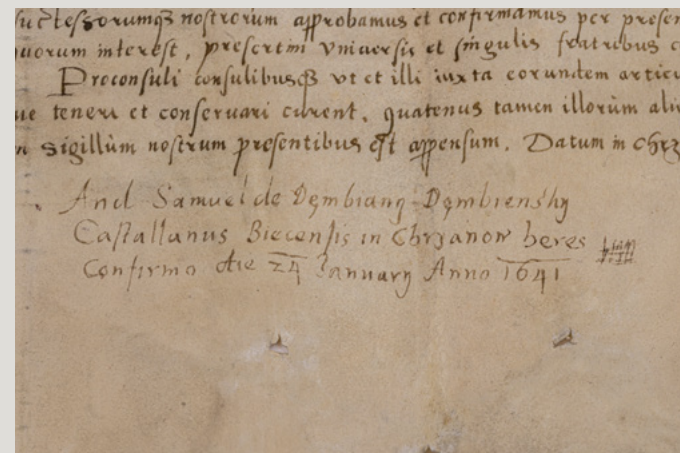 successorumq3 nostrorum approbamus et confirmamus per presen
quorum interest, presertim vniuersis et singulis fratribus c
Proconsuli consulibusq3 vt et illi iuxta eorundem articu
ue teneri et conseruari curent, quatenus tamen illorùm ali
n Sigillùm nostrum presentibus est appensum. Datum in Chrz
And Samuel de Dembiany Dembiensky
Castallanus Biecensis in Chrzanow heres
Confirmo die 24 January Anno 1641